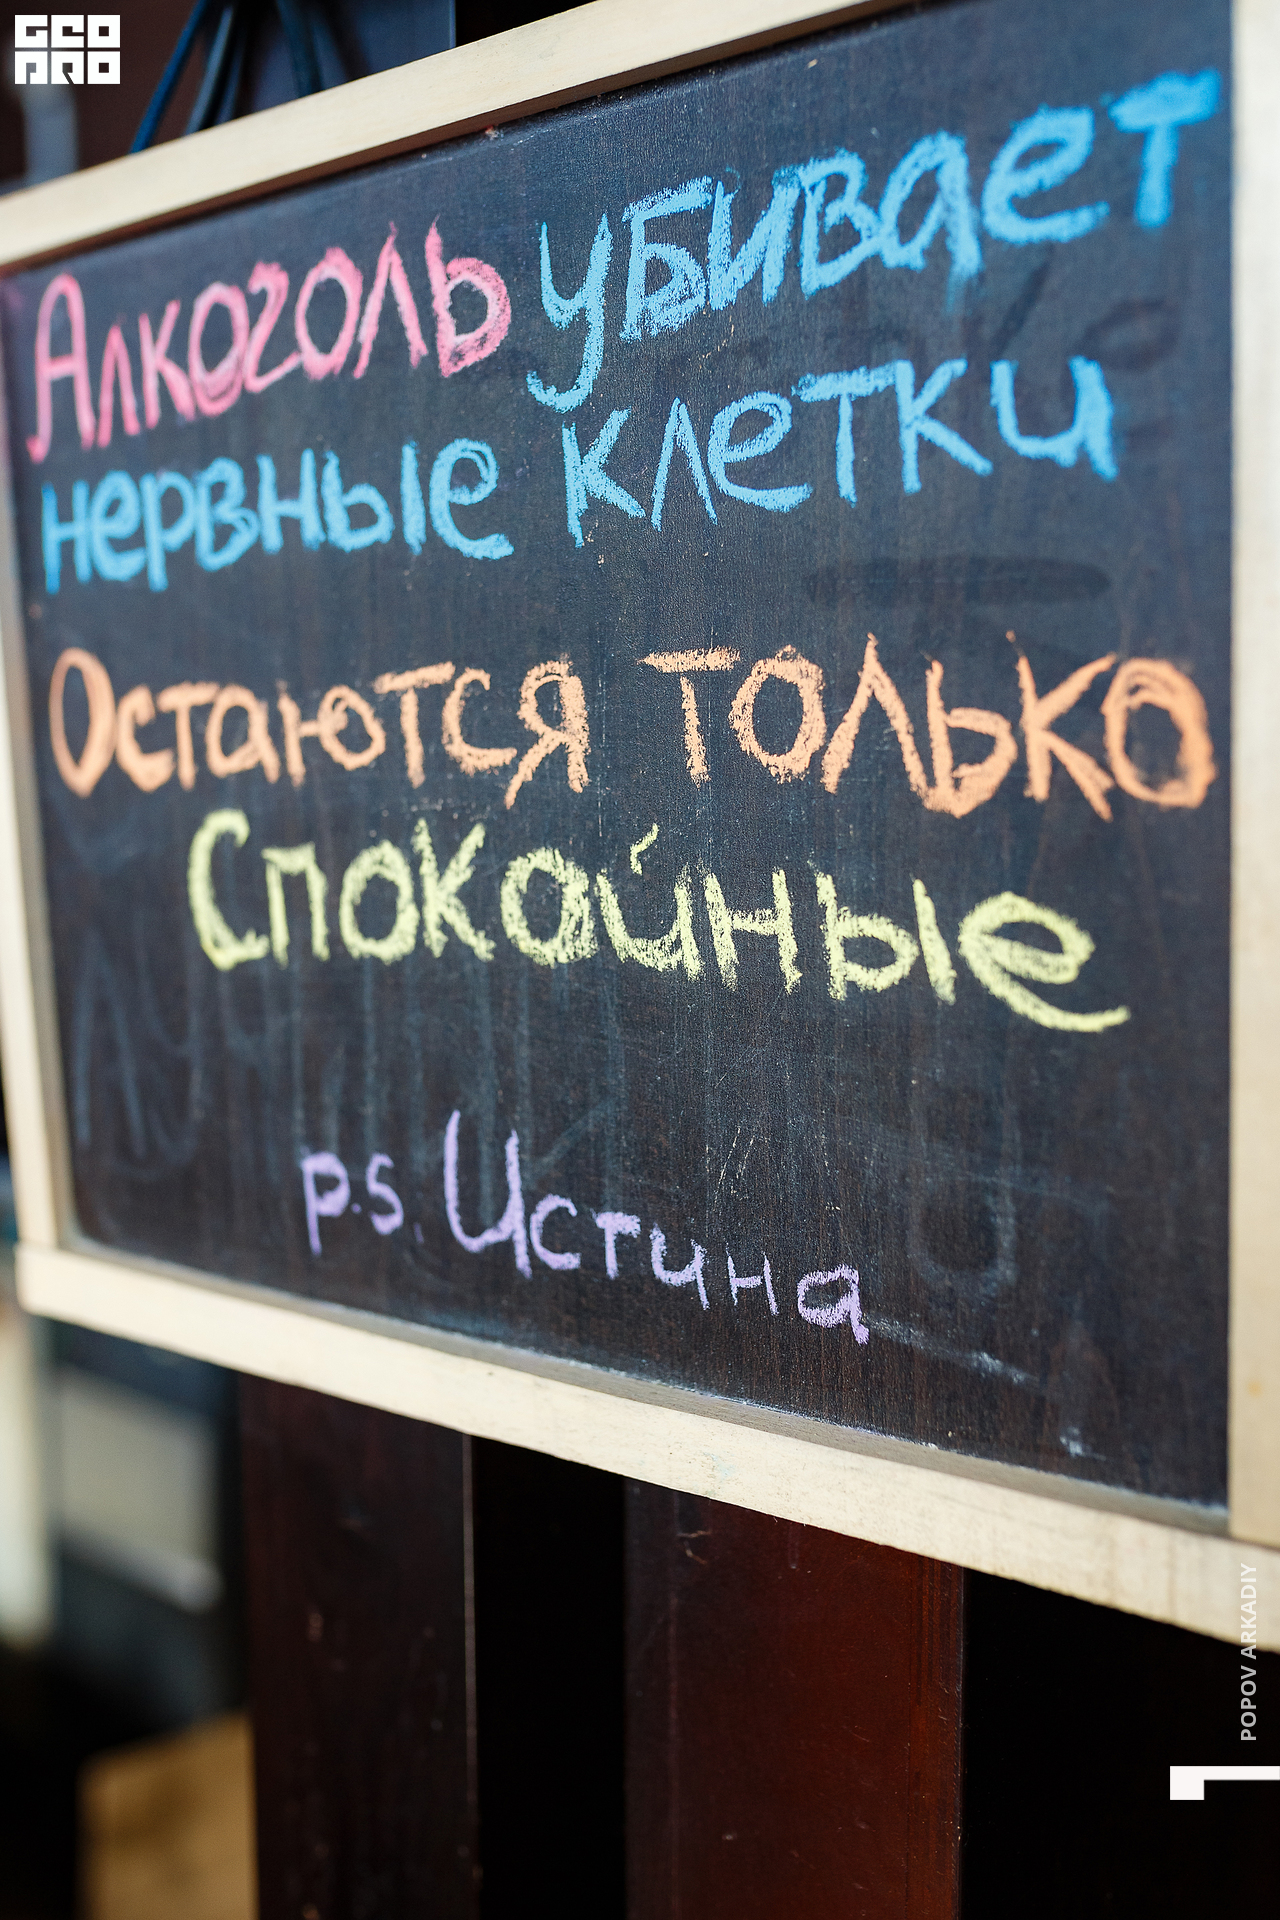 GEO
PRO
Алкоголь убивает
нервные клетки
Остаются только
Спокойные
p.s. Истина
POPOV ARKADIY